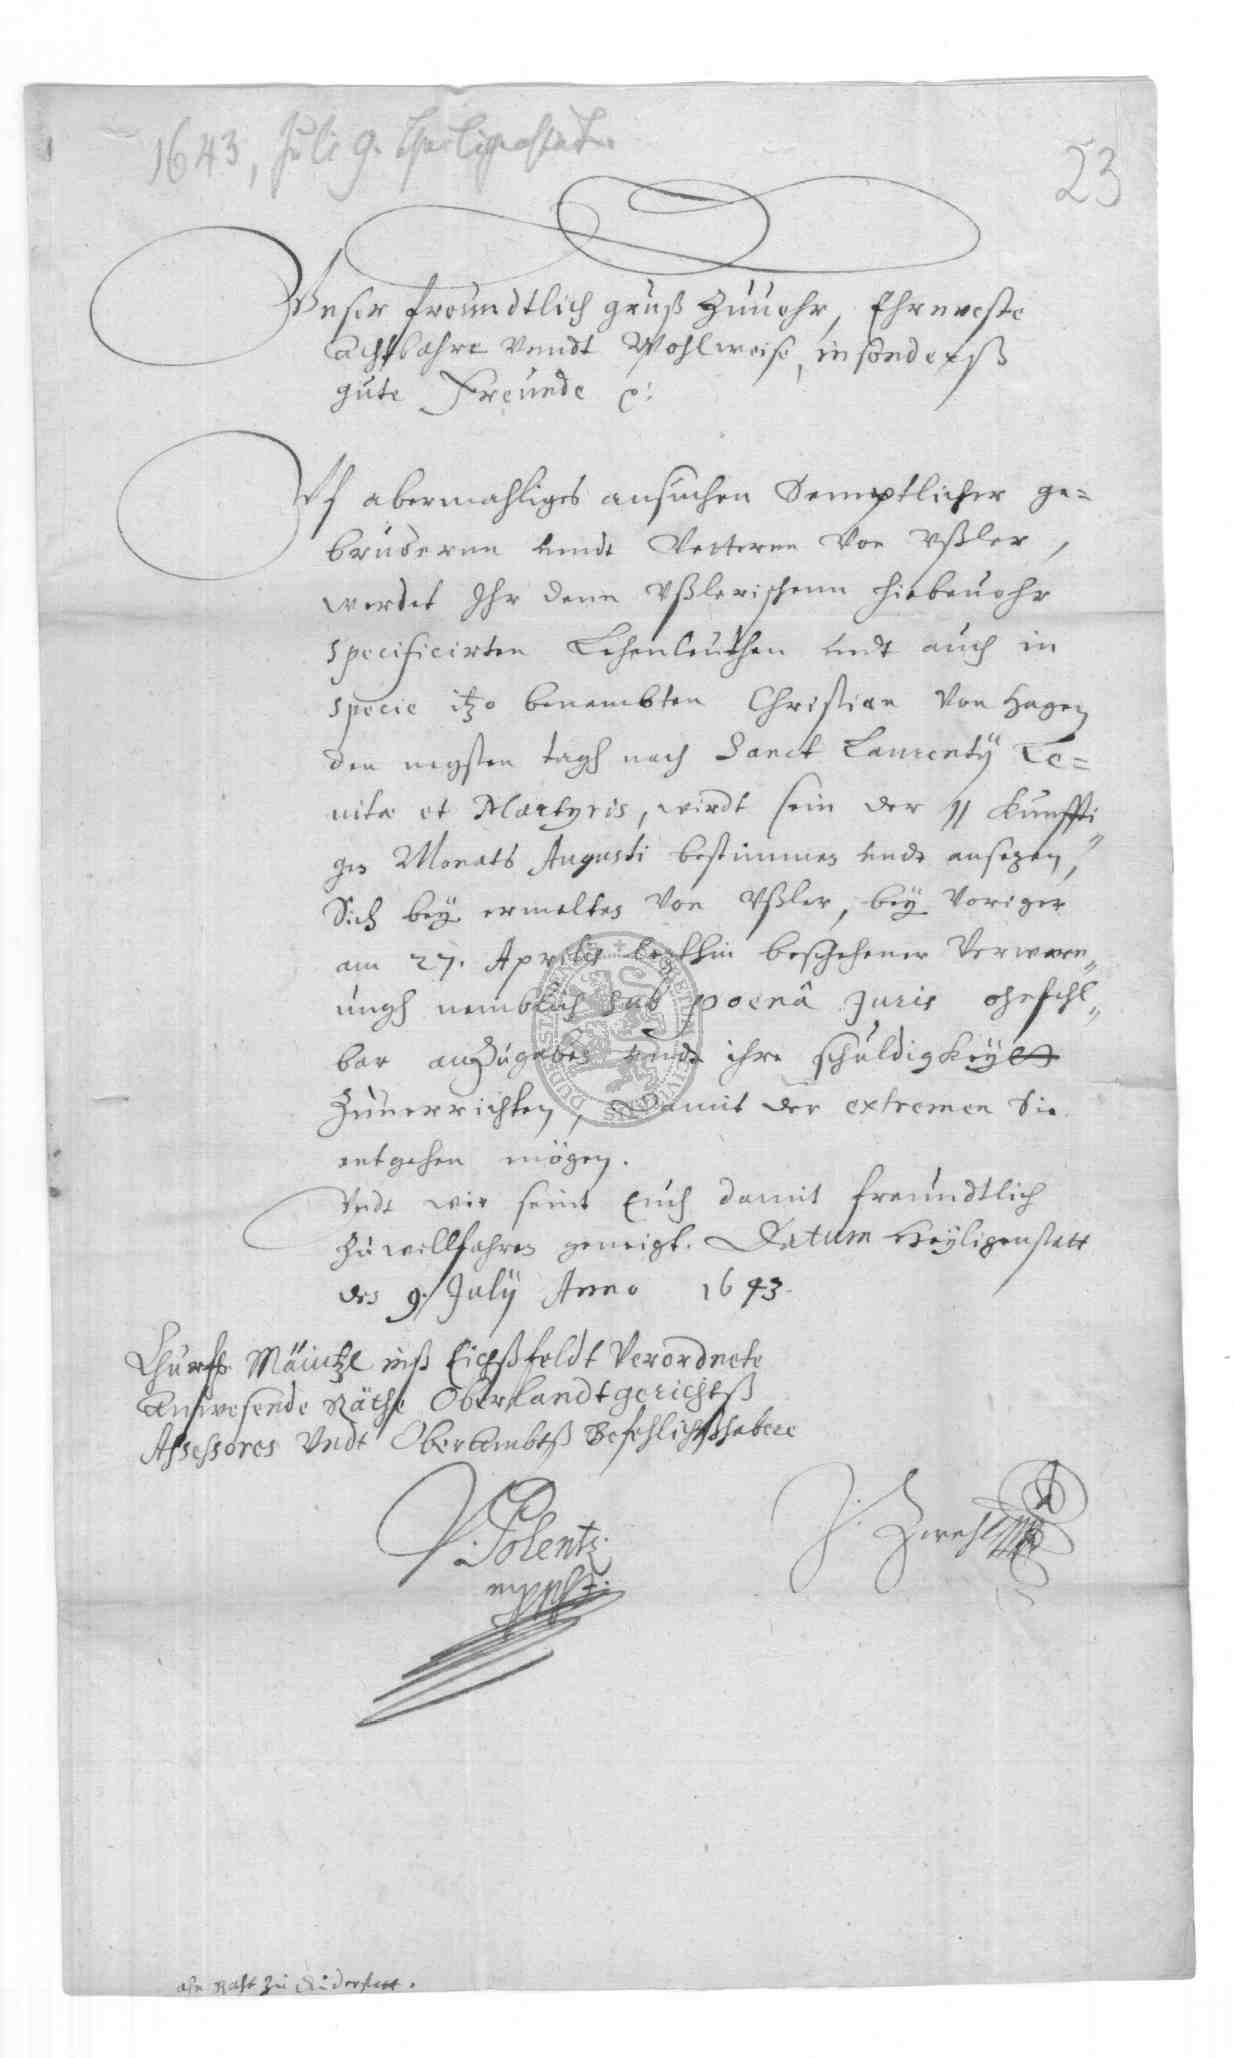 1643, Juli 9. Heiligenstadt.
23
Vnser freundtlich gruß Zuuohr, Ehrnveste
Achtbahre Vnndt Wohlweise, insonderß
gute Freunde
Vf abermahliges ansuchen Semptlicher ge=
brüderenn vndt Vetterenn Von Vßler,
werdet Ihr denn Vßlerischenn hiebeuohr
specificirten Lehenleuthen vndt auch in
specie itzo benambten Christian Von Hagen
den negsten tagh nach Sanct Laurentÿ Le=
uitæ et Martyris, wirdt sein der 11 Kunffti
ges Monats Augusti bestimmen vndt ansezen,
Sich beÿ ermelten Von Vßler, beÿ Voriger
am 27. Aprilis lezthin beschehener Verwarn„
ungh nemblich sub poenâ Juris ohnfehl„
bar anzugeben vndt ihre schuldigkeÿtt
Zuuerrichten, Damit der extremen Sie
entgehen mögen.
Vndt wir seint Euch damit freundtlich
Zu willfahren geneigt. Datum Heÿligenstatt
den 9. Julÿ Anno 1643.
Churf. Mäintz. inß Eichßfeldt Verordnete
Anwesende Räthe Oberlandtgerichtß
Assessores Vndt OberAmbtß Befehlichßhabere
V. Polentz
mppria
J. Zwehl
ahn Raht zu Duderstatt.